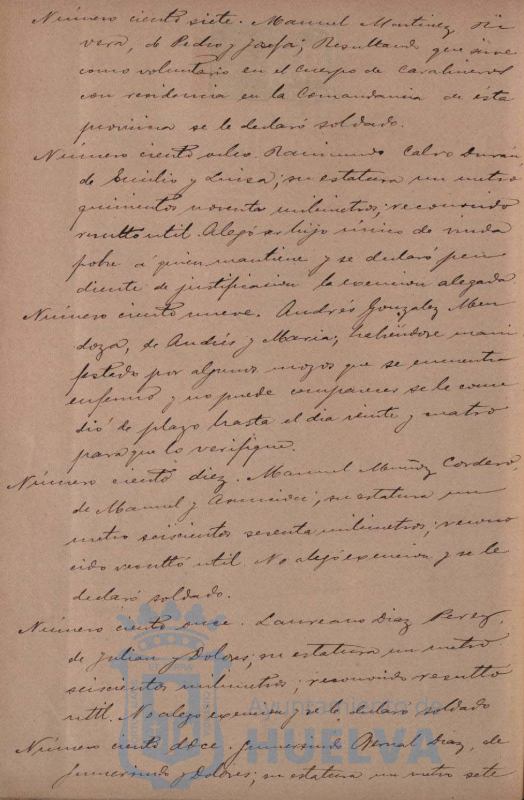 Número ciento siete. Manuel Martinez Ri
vera, de Pedro y Josefa; Resultando que sirve
como voluntario en el cuerpo de Carabineros
con residencia en la Comandancia de ésta
provincia se le declaró soldado.
Número ciento ocho. Raimundo Calvo Durán
de Emilio y Luisa; su estatura un metro
quinientos noventa milimetros; reconocido
resultó util. Alegó ser hijo único de viuda
pobre á quien mantiene y se declaró pen
diente de justificacion la exencion alegada
Número ciento nueve. Andrés Gonzalez Men
doza, de Andrés y Maria; habiéndose mani
festado por algunos mozos que se encuentra
enfermo y no puede comparecer se le conce
dió de plazo hasta el dia veinte y cuatro
para que lo verifique.
Número ciento diez. Manuel Muñoz Cordero,
de Manuel y Asuncion; su estatura un
metro seiscientos sesenta milimetros; recono
cido resultó util. No alegó exencion y se le
declaró soldado.
Número ciento once. Laureano Diaz Perez,
de Julian y Dolores; su estatura un metro
seiscientos milimetros; reconocido resultó
util. No alegó exencion y se le declaró soldado
Número ciento doce. Gumersindo Bernal Diaz, de
Gumersindo y Dolores; su estatura un metro sete
Ayuntamiento de
HUELVA